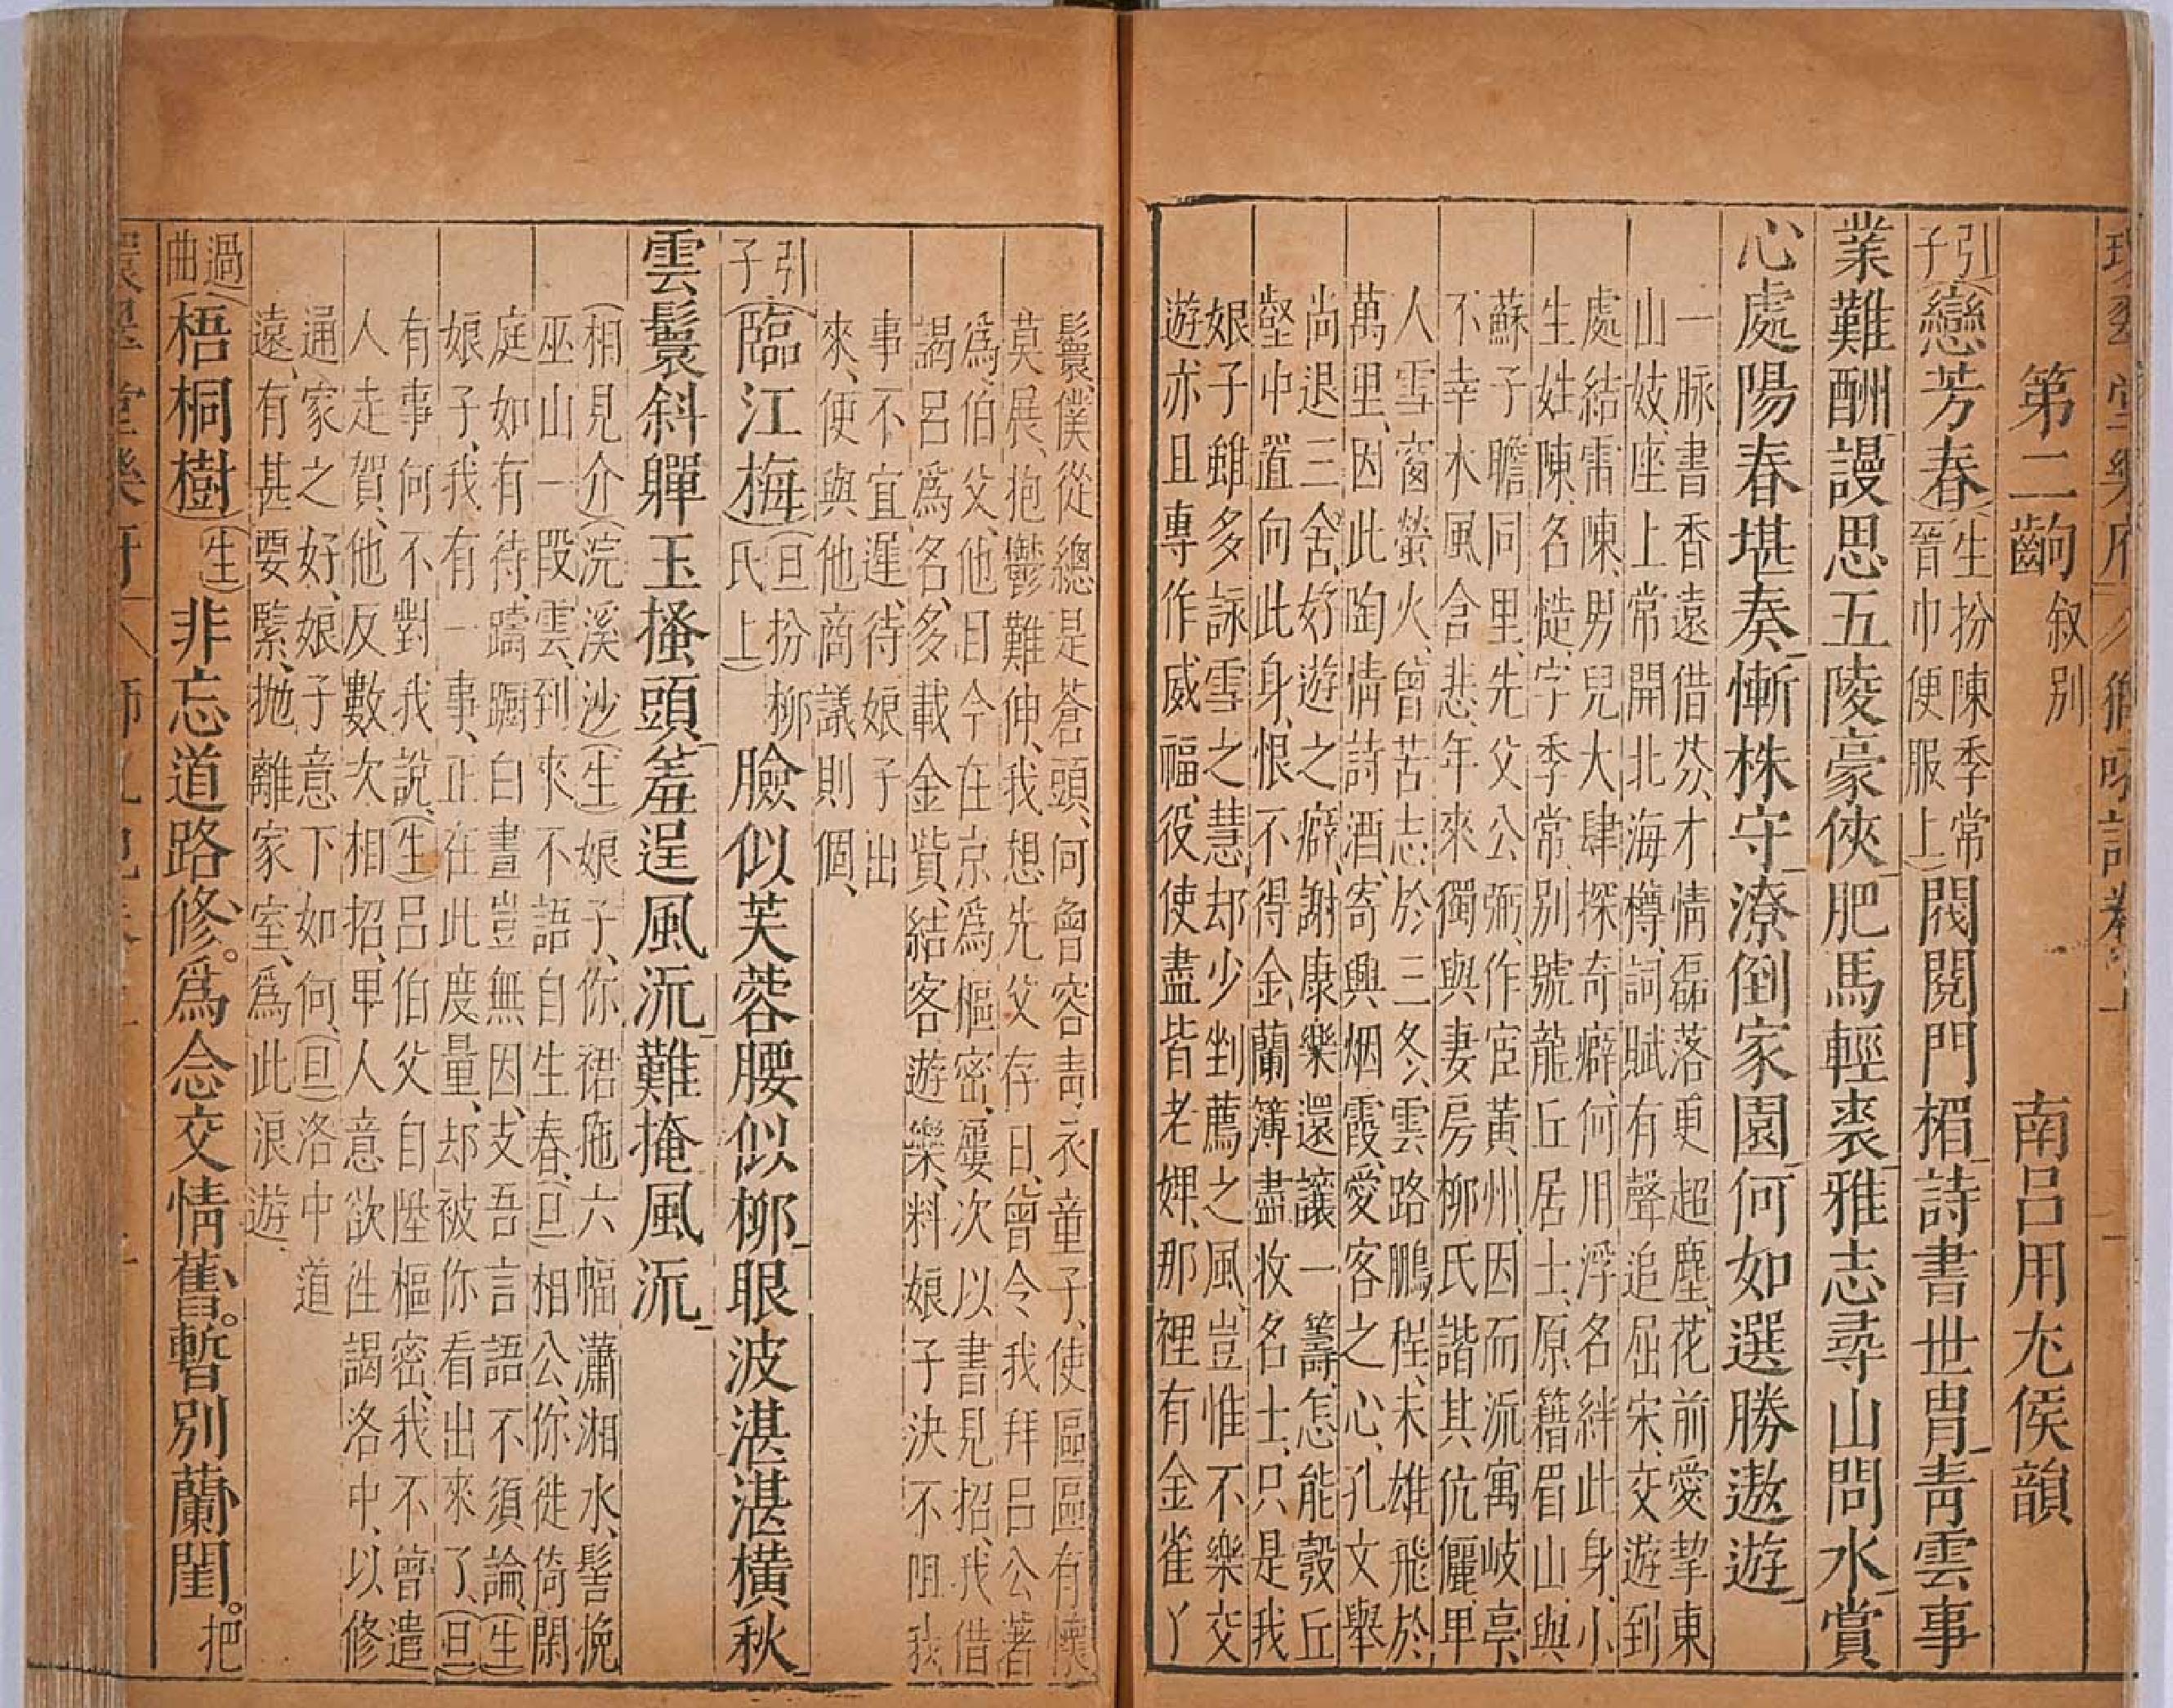 環翠堂樂府 獅吼記卷上 一
第二齣 叙別 南呂用尤侯韻
引子(戀芳春)(生扮陳季常晉巾便服上)閥閱門楣詩書世胄青雲事
業難酬謾思五陵豪俠肥馬輕裘雅志尋山問水賞
心處陽春堪奏慚株守潦倒家園何如選勝遨遊
一脉書香遠借芬、才情磊落更超塵、花前愛挈東
山妓、座上常開北海樽、詞賦有聲追屈宋、交遊到
處結雷陳、男兒大肆探奇癖、何用浮名絆此身、小
生姓陳、名慥、字季常、別號龍丘居士、原籍眉山、與
蘇子瞻同里、先父公弼、作宦黃州、因而流寓岐亭、
不幸木風含悲、年來獨與妻房柳氏諧其伉儷、卑
人雪窗螢火、曾苦志於三冬、雲路鵬程、未雄飛於
萬里、因此陶情詩酒、寄興烟霞、愛客之心、孔文舉
尚退三舍、好遊之癖、謝康樂還讓一籌、怎能彀丘
壑中置向此身、恨不得金蘭簿盡收名士、只是我
娘子雖多詠雪之慧、却少剉薦之風、豈惟不樂交
遊亦且專作威福、役使盡皆老婢、那裡有金雀丫
鬟、僕從總是蒼頭、何曾容青衣童子、使區區有懷
莫展、抱鬱難伸、我想先父存日、曾令我拜呂公著
爲伯父、他目今在京爲樞密、屢次以書見招、我借
謁呂爲名、多載金貲、結客遊樂、料娘子決不阻我
事不宜遲、待娘子出
來、便與他商議則個、
引子(臨江梅)(旦扮柳氏上)臉似芙蓉腰似柳眼波湛湛橫秋
雲鬟斜軃玉搔頭羞逞風流難掩風流
(相見介)(浣溪沙)(生)娘子、你裙拖六幅瀟湘水、髻挽
巫山一段雲、到來不語自生春、(旦)相公、你徙倚閑
庭如有待、躊躕白晝豈無因、支吾言語不須論、(生)
娘子、我有一事、正在此度量、却被你看出來了、(旦)
有事何不對我說、(生)呂伯父自陞樞密、我不曾遣
人走賀、他反數次相招、卑人意欲往謁洛中、以修
通家之好、娘子意下如何、(旦)洛中道
遠、有甚要緊、拋離家室、爲此浪遊、
過曲(梧桐樹)(生)非忘道路修。爲念交情舊。暫別蘭閨。把